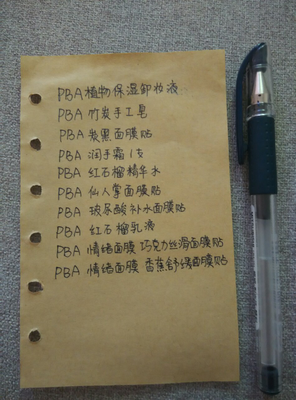 PBA 植物保湿卸妆液
PBA 竹炭手工皂
PBA 炭黑面膜贴
PBA 润手霜1支
PBA 红石榴精华水
PBA 仙人掌面膜贴
PBA 玻尿酸补水面膜贴
PBA 红石榴乳液
PBA 情绪面膜 巧克力丝滑面膜贴
PBA 情绪面膜 香蕉舒缓面膜贴